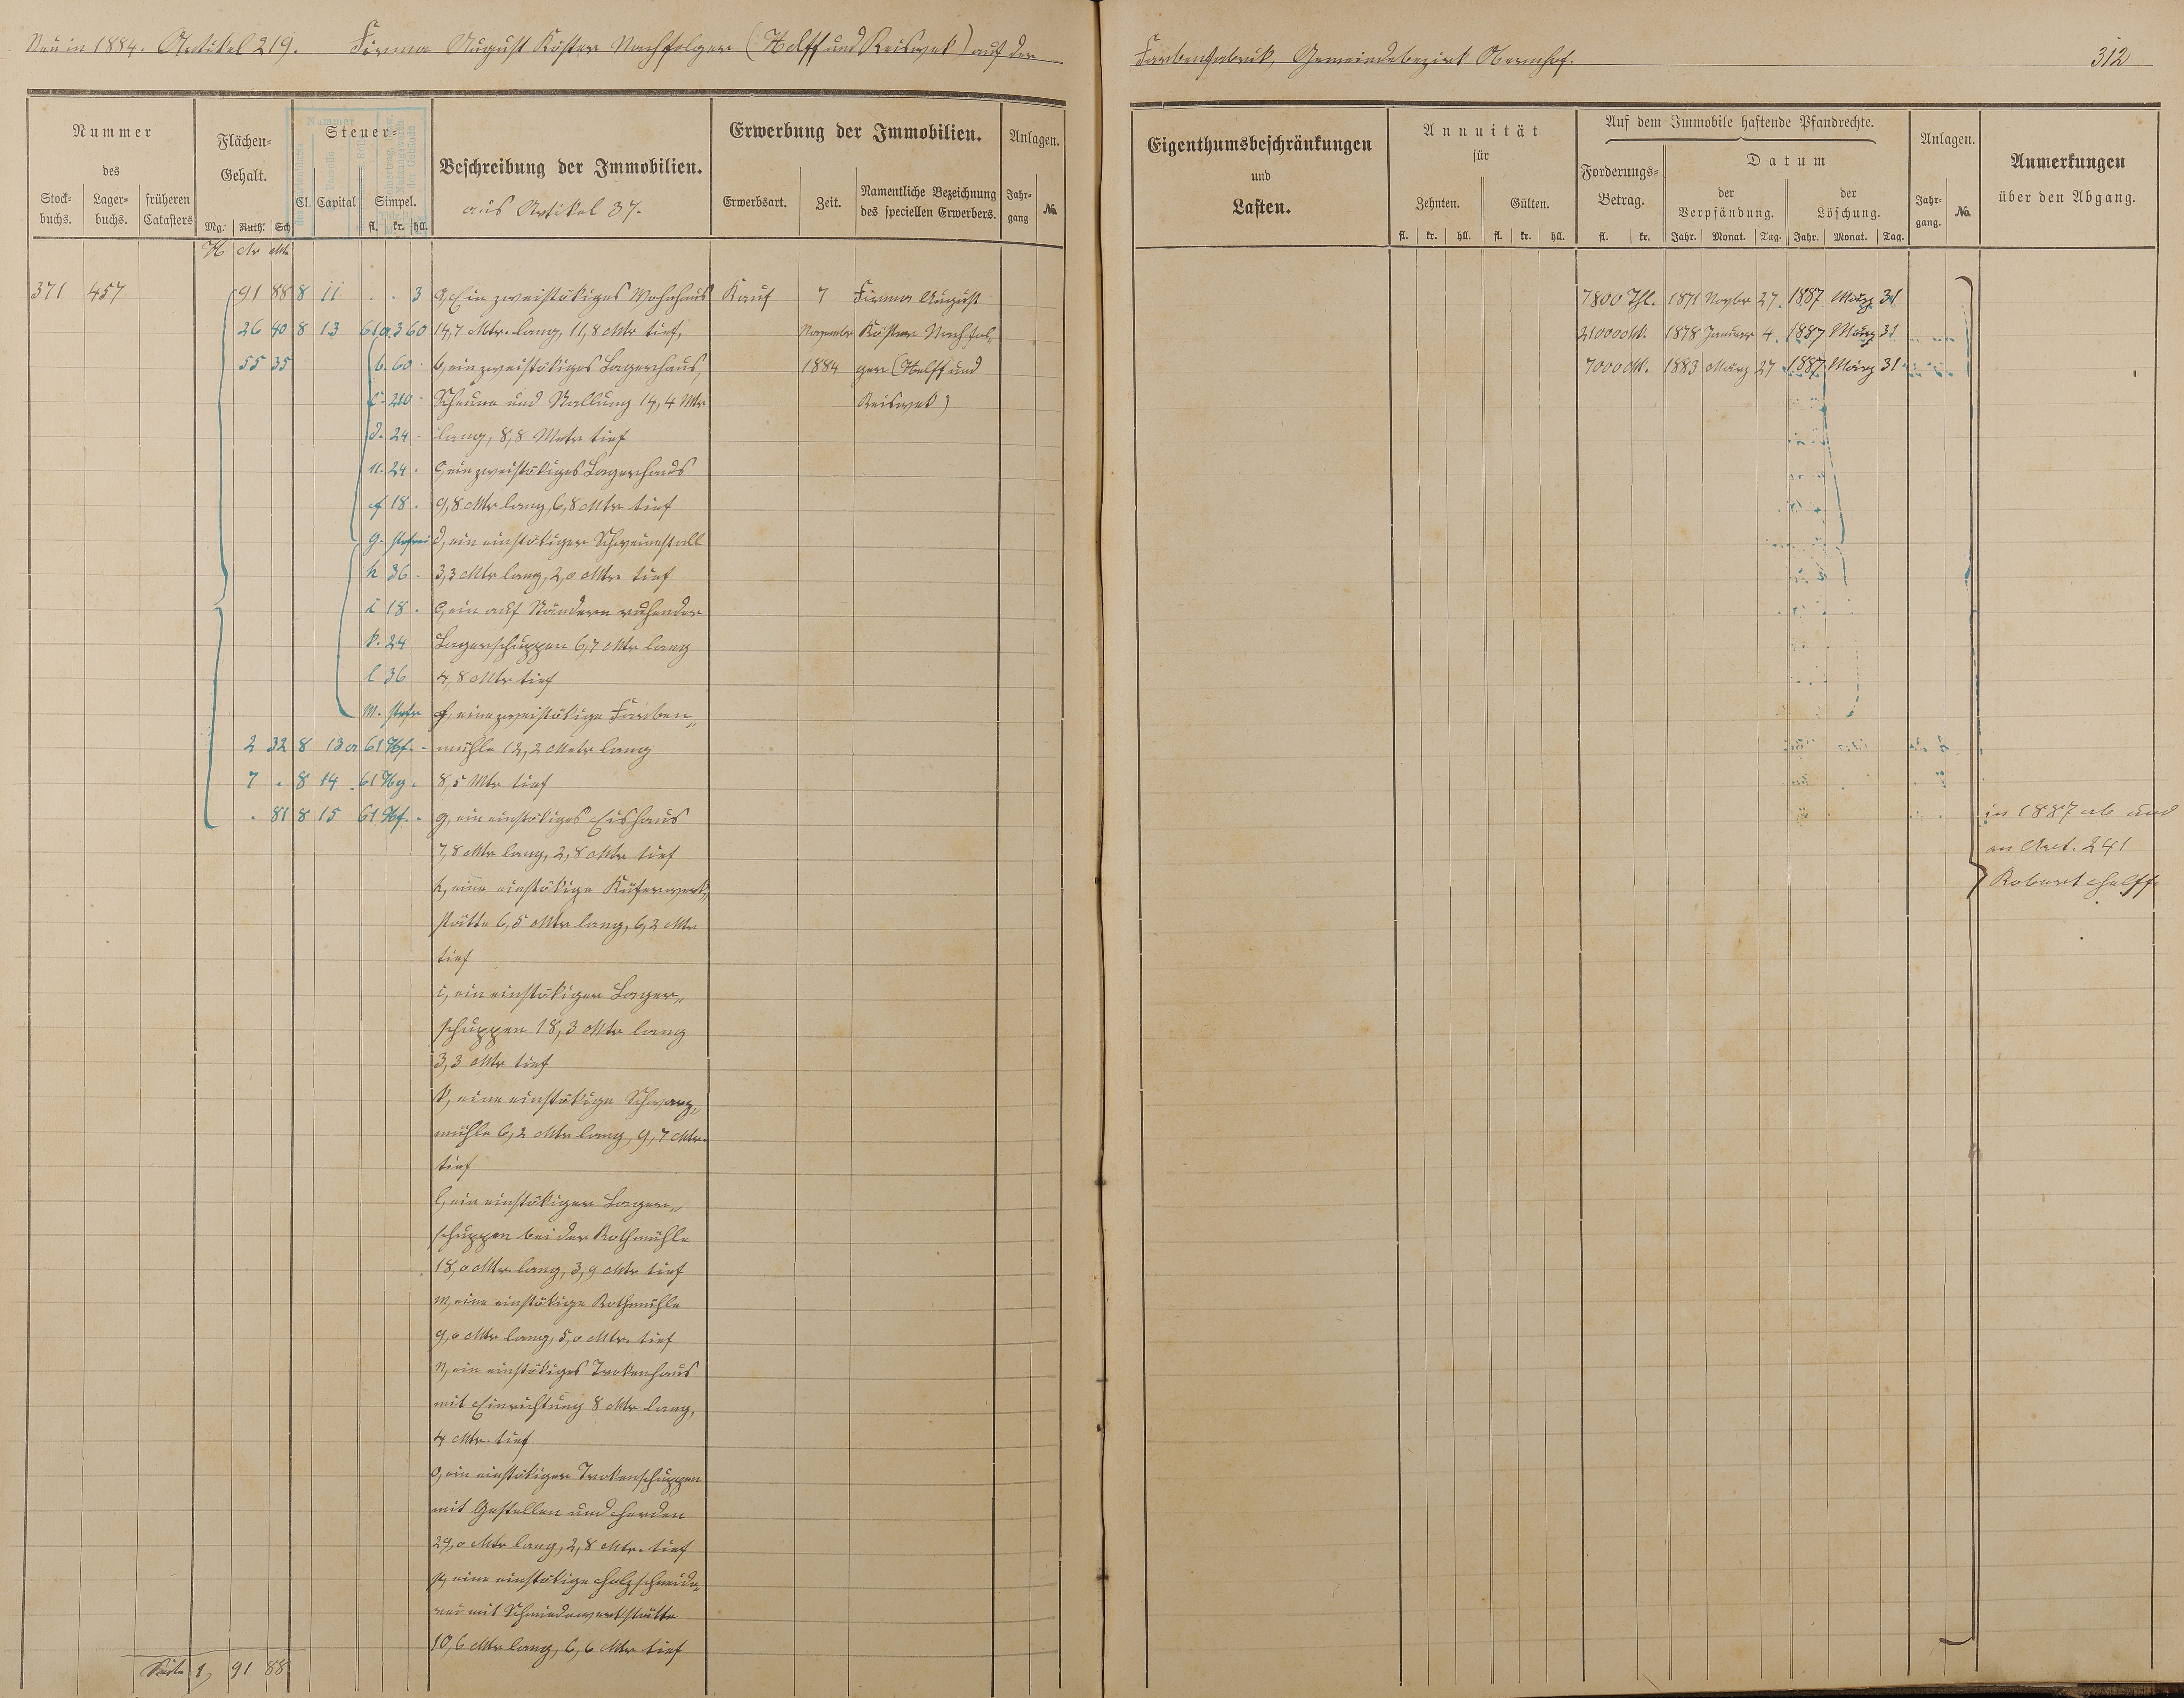 Neu in 1884. Artikel 219. Firma August Köster Nachfolger (Helff und Reiswek) auf der
Farbenfabrik, Gemeindebezirk Obernhof. 312
Nummer
des
Stock-
buchs.
Lager-
buchs.
früheren
Catasters
Flächen-
Gehalt.
Mg. Ruth. Sch
H Ar Mtr
Nummer
Steuer-
Cl. Capital Simpel.
fl. kr. hll.
Beschreibung der Immobilien.
aus Artikel 37.
Erwerbung der Immobilien.
Erwerbsart. Zeit.
Namentliche Bezeichnung
des speciellen Erwerbers.
Anlagen.
Jahr-
gang
No.
Eigenthumsbeschränkungen
und
Lasten.
Annuität
für
Zehnten. Gülten.
fl. kr. hll. fl. kr. hll.
Auf dem Immobile haftende Pfandrechte.
Forderungs-
Betrag.
fl. kr.
Datum
der
Verpfändung.
der
Löschung.
Jahr. Monat. Tag. Jahr. Monat. Tag.
Anlagen.
Jahr-
gang.
No.
Anmerkungen
über den Abgang.
371 457 91 88 8 11 . . 3 a, Ein zweistökiges Wohnhaus Kauf 7 Firma August 7800 Thl. 1871 Novbr 27. 1887 März 31
26 40 8 13 61 a. 360 14,7 Mtr. lang, 11,8 Mtr tief, November Köster Nachfol- 21000 Mk. 1878 Januar 4. 1887 März 31
55 35 b. 60 b, ein zweistökiges Lagerhaus, 1884 ger (Helff und 7000 Mk. 1883 März 27 1887 März 31
c - 210 - Scheune und Stallung 14,4 Mtr Reiswek)
d. 24 - lang, 8,8 Mtr tief
24 . c, ein zweistökiges Lagerhaus
f 18 . 9,8 Mtr lang, 6,8 Mtr tief
g - stfrei d, ein einstökiger Schweinestall
h 36 - 3,3 Mtr lang, 2,0 Mtr. tief
i 18 . e, ein auf Ständern ruhender
k. 24 Lagerschuppen 6,7 Mtr lang
l 36 4,8 Mtr tief
m. stfr f, eine zweistökige Farben-
2 32 8 13 a 61 Hf. - mühle 12,2 Mtr lang
7 . 8 14 61 Hg. 8,5 Mtr tief
. 81 8 15 61 Hf. - g, ein einstökiges Eishaus
7,8 Mtr lang, 2,8 Mtr tief
h, eine einstökige Küferwerk-
stätte 6,5 Mtr lang, 6,2 Mtr
tief
i, ein einstökiger Lager-
schuppen 18,3 Mtr lang
3,3 Mtr tief
k, eine einstökige Schwarz-
mühle 6,2 Mtr lang, 9,7 Mtr.
tief
l, ein einstökiger Lager-
schuppen bei der Rothmühle
18,0 Mtr. lang, 3,9 Mtr tief
m, eine einstökige Rothmühle
9,0 Mtr lang, 5,0 Mtr. tief
n, ein einstökiges Trokenhaus
mit Einrichtung 8 Mtr lang,
4 Mtr. tief
o, ein einstökiger Trokenschuppen
mit Gestellen und Horden
29,0 Mtr lang, 2,8 Mtr. tief
p, eine einstökige Holzschneide-
rei mit Schmiedewerkstätte
10,6 Mtr lang, 6,6 Mtr tief
Seite 1, 91 88
in 1887 ab und
an Art. 241
Robert Helff